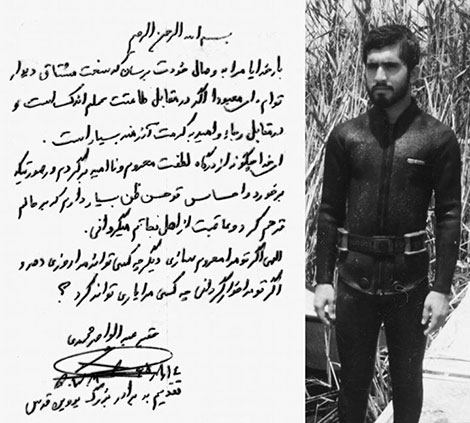 بسم الله الرحمن الرحیم
بار خدایا مرا به وصال خودت برسان که سخت مشتاق دیدار
توام، ای معبودا اگر در مقابل طاعتت عملم اندک است و
در مقابل رجاء و امید به کرمت آرزمند بسیار است.
ای خدا چگونه از درگاه لطفت محروم و ناامید برگردم در صورتیکه
برخورد و احساس تو حسن ظن بسیار دارم که بر حالم
ترحم کرد و عاقبت از اهل نجاتم میگردانی.
الهی اگر تو مرا محروم سازی دیگر چه کسی تواند مرا روزی دهد و
اگر تو مرا خوار گردانی چه کسی مرا یاری تواند کرد؟
عبدالواحد محمدی
تقدیم به برادر بزرگ پروین قدس